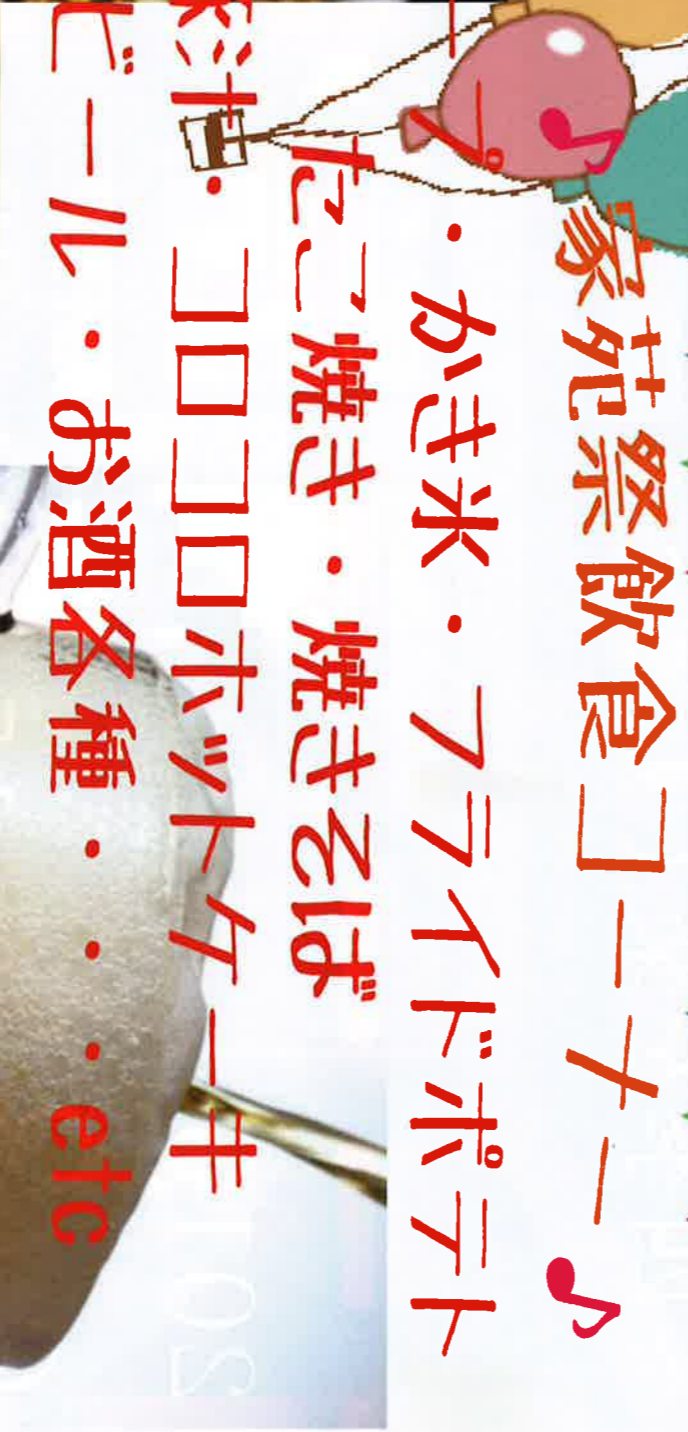 ♪家苑祭飲食コーナー♪
ープ・かき氷・フライドポテト
たこ焼き・焼きそば
汁・コロコロホットケーキ
ビール・お酒各種・・・etc